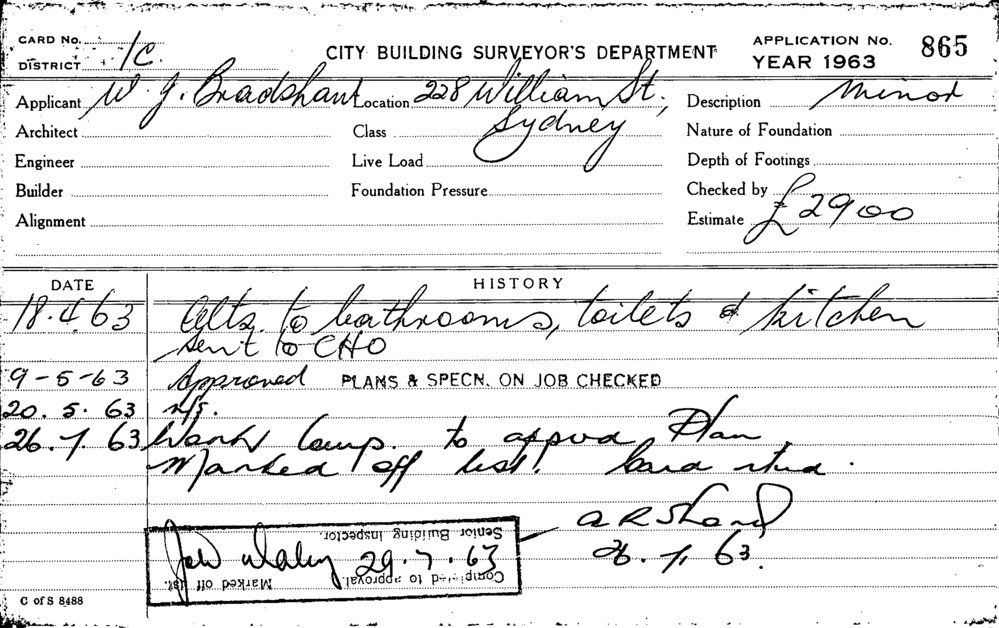 CARD No.
DISTRICT 1C.
CITY BUILDING SURVEYOR'S DEPARTMENT
APPLICATION No. 865
YEAR 1963
Applicant W. J. Bradshaw Location 228 William St., Description Minor
Sydney
Architect Class Nature of Foundation
Engineer Live Load Depth of Footings
Builder Foundation Pressure Checked by
Alignment Estimate £2900
DATE HISTORY
18.4.63 Alts. to bathrooms, toilets & kitchen
sent to CHO
9-5-63 Approved PLANS & SPECN. ON JOB CHECKED
20.5.63 n/s.
26.7.63 Work Comp. to approd Plan
Marked off list. Card
26.7.63.
Completed to approval. Marked off list.
29.7.63
Senior Building Inspector.
C of S 8488